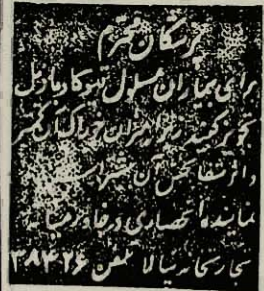 پزشکان محترم
برای بیماران مسلول تئوکاردیازیل
تجویز کنید زیرا میزان خوراکیان کمتر
و اثر شفابخش آن بیشتر است
نماینده انحصاری درخاورمیانه
تجارتخانه سالا تلفن ۳۸۴۲۶